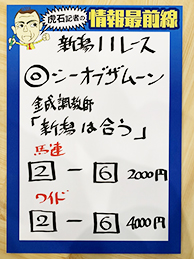 虎石記者の情報最前線
新潟11レース
◎シーオブザムーン
金成調教師
「新潟は合う」
馬連
2-6 2000円
ワイド
2-6 4000円